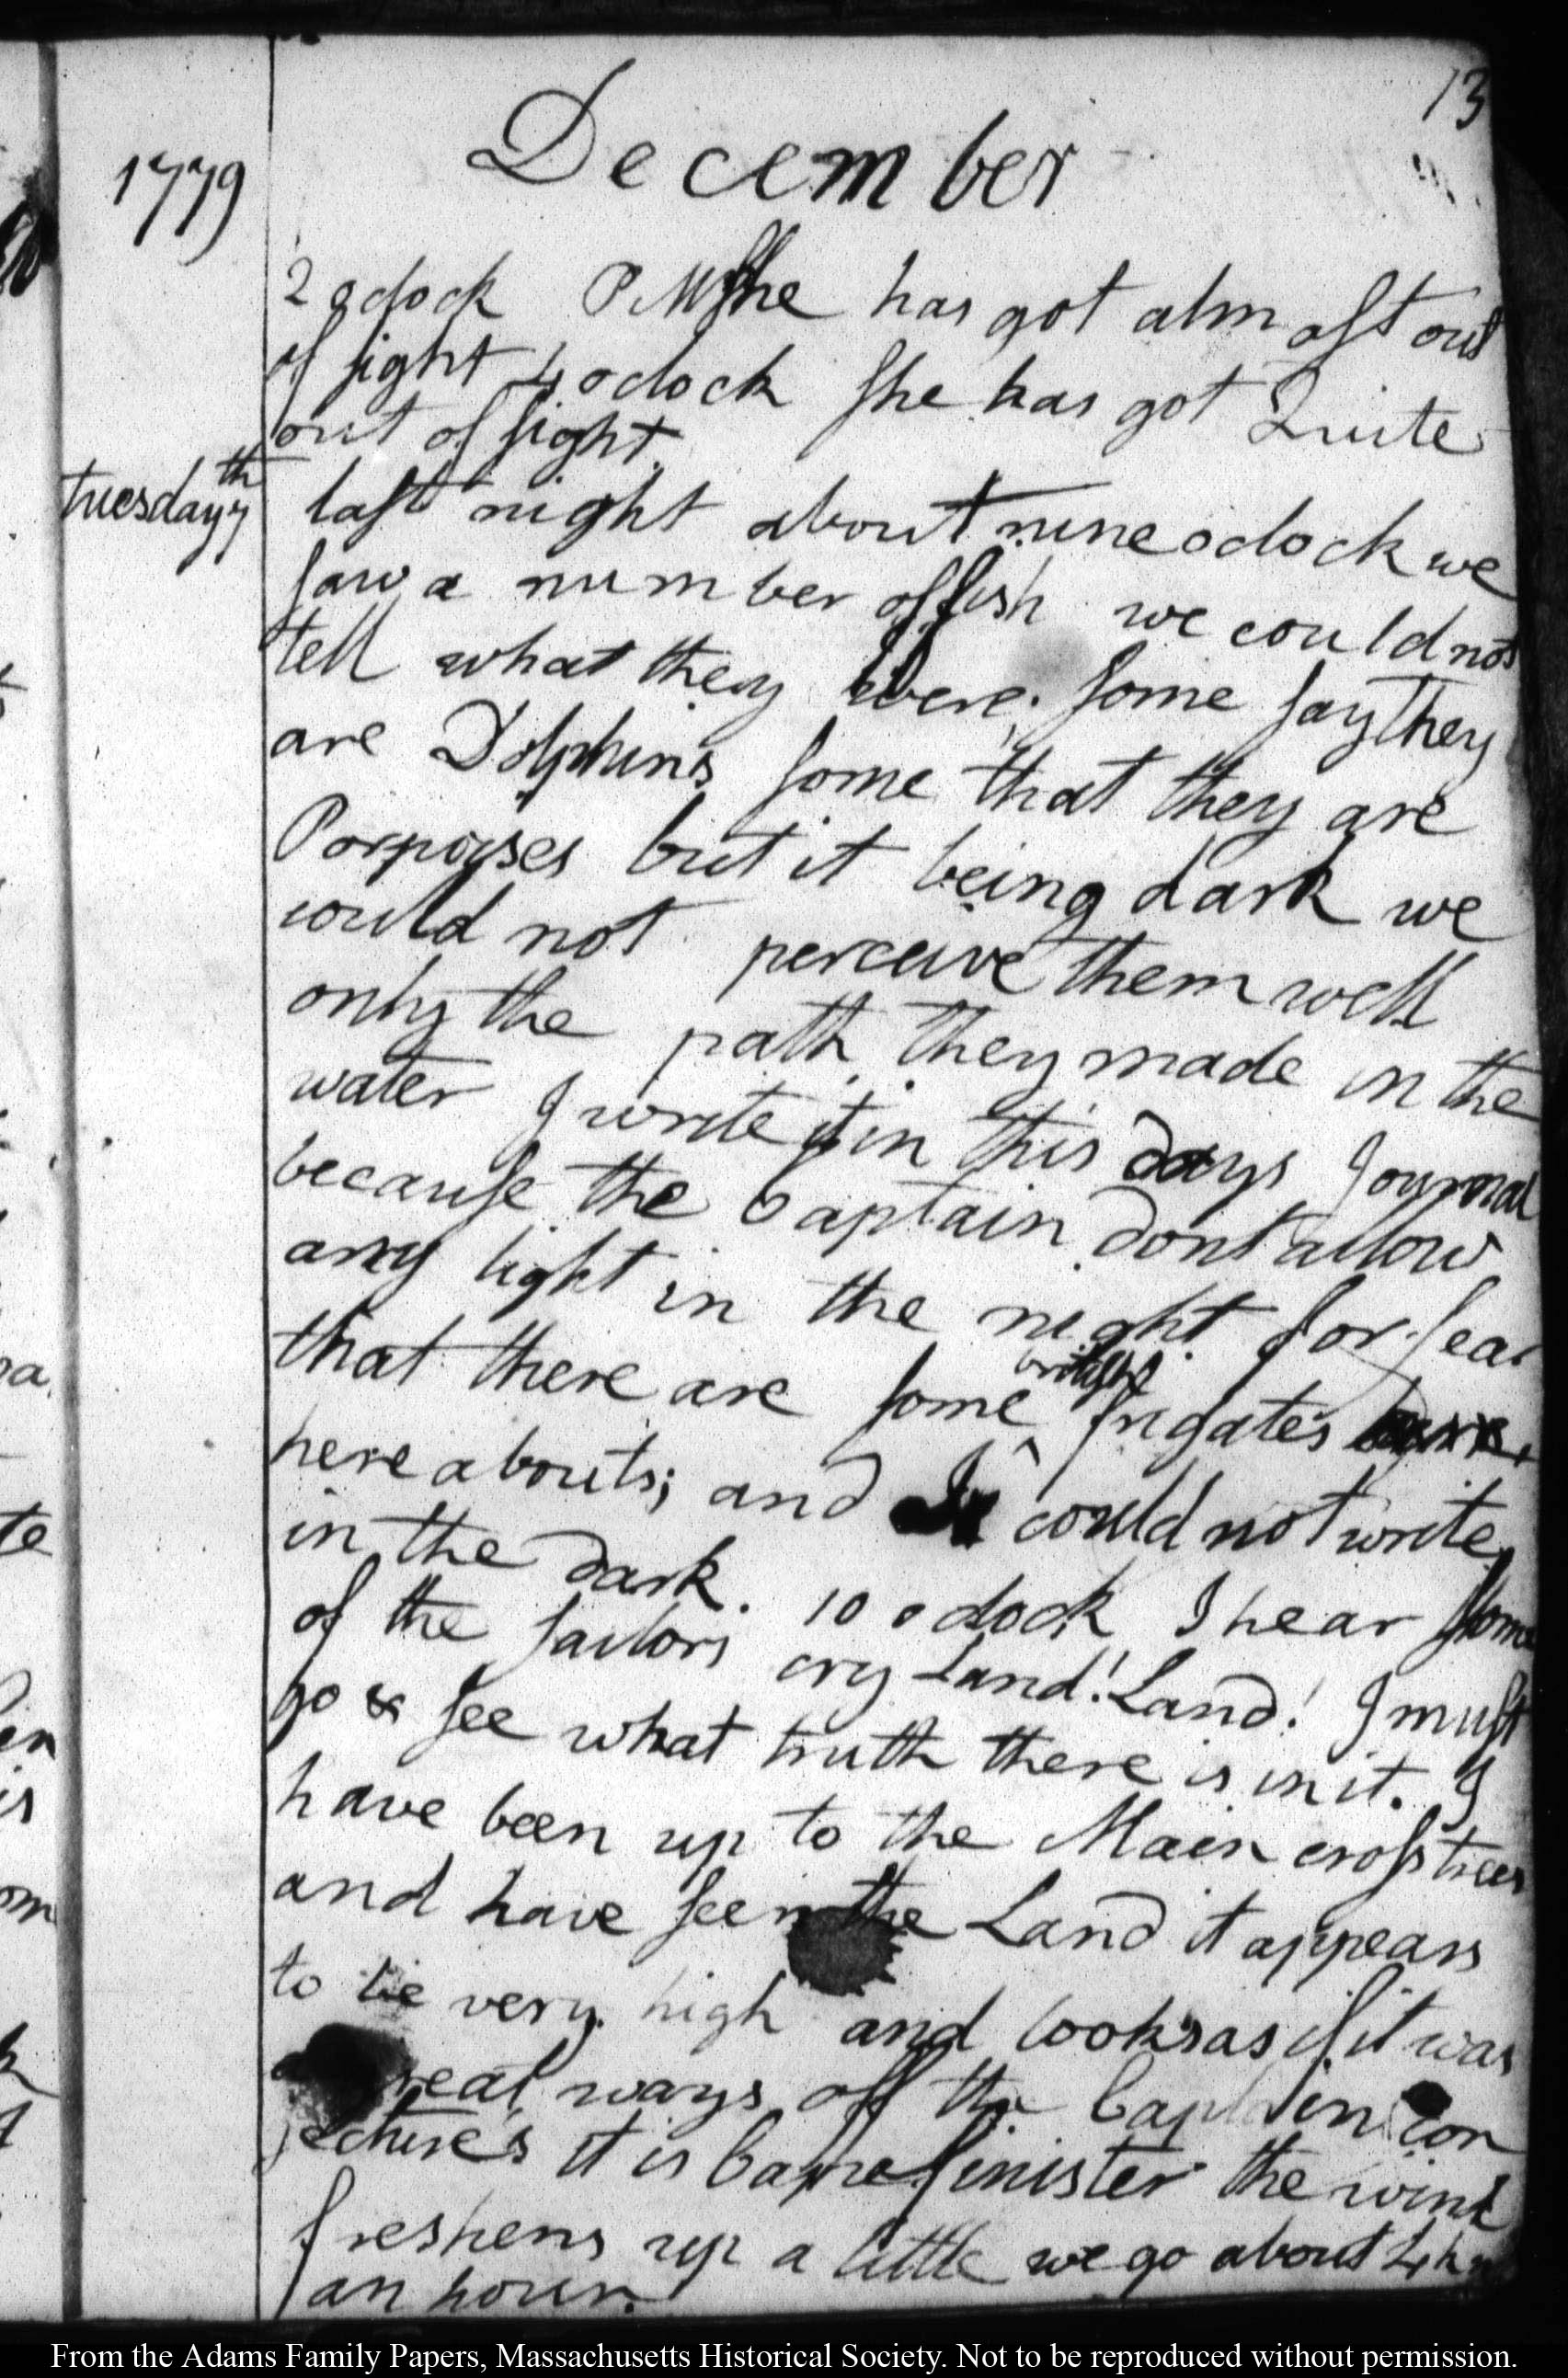 13
December
1779
2 oclock PM She has got almost out
of sight 4 oclock she has got Quite
out of sight.
tuesday 7th last night about nine oclock we
saw a number of fish we could not
tell what they were. some say they
are Dolphins some that they are
Porpoises but it being dark we
could not perceive them well
only the path they made in the
water I write it in this days Journal
because the Captain dont allow
any light in the night for fear
that there are some british frigates
here abouts; and I could not write
in the dark. 10 oclock I hear some
of the sailors cry Land! Land! I must
go & see what truth there is in it. I
have been up to the Main cross trees
and have seen the Land it appears
to be very high and looks as if it was
a great ways off the Captain con
jectures it is Cape finister the wind
freshens up a little we go about 4
an hour.
From the Adams Family Papers, Massachusetts Historical Society. Not to be reproduced without permission.